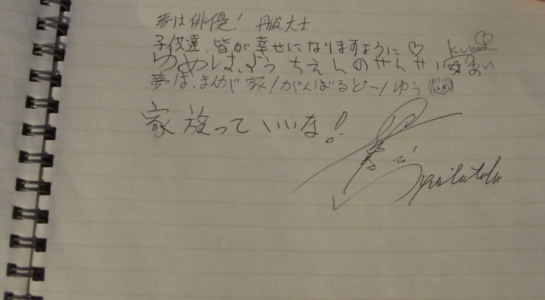 夢は俳優! 丹波大士
子供達、皆が幸せになりますように♡ kumi♡
ゆめは、ようちえんのせんせい まい
夢は、まんが家!がんばるどー!ゆう
家族っていいな!